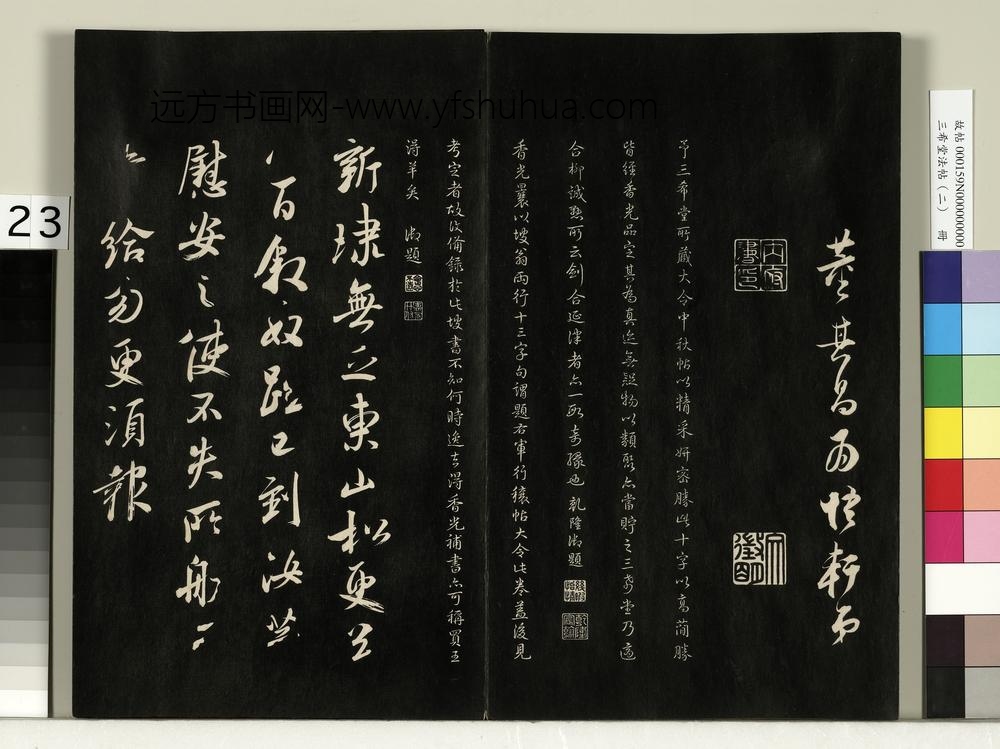 董其昌為懷軒弟
予三希堂所藏大令中秋帖以精采妍密勝此十字以高簡勝
皆經香光品定其為真迹無疑物以類聚亦當貯之三希堂乃適
合柳誠懸所云劍合延津者亦一段奇緣也 乾隆御題
香光曩以坡翁兩行十三字句謂題右軍行穰帖大令此卷蓋後見
考定者故以備錄於此坡書不知何時逸去得香光補書亦可稱買王
得羊矣 御題
新埭無乏東山松更送
八百敘奴跽已到汝其
慰安之使不失所船
給勿更須報
远方书画网-www.yfshuhua.com
23
故帖 000159N000000000
三希堂法帖(二) 冊